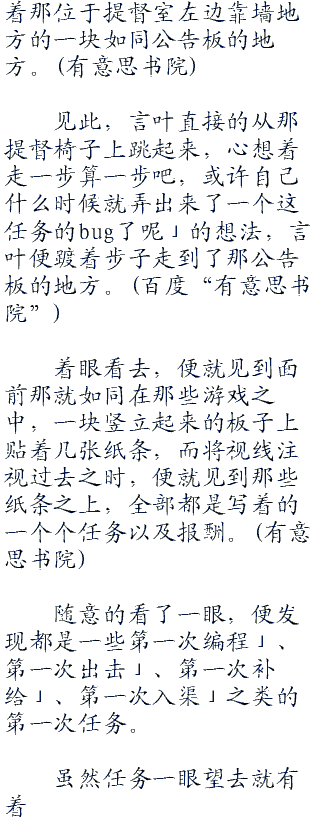 着那位于提督室左边靠墙地
方的一块如同公告板的地
方。(有意思书院)
见此，言叶直接的从那
提督椅子上跳起来，心想着
走一步算一步吧，或许自己
什么时候就弄出来了一个这
任务的bug了呢」的想法，言
叶便踱着步子走到了那公告
板的地方。(百度“有意思书
院”)
着眼看去，便就见到面
前那就如同在那些游戏之
中，一块竖立起来的板子上
贴着几张纸条，而将视线注
视过去之时，便就见到那些
纸条之上，全部都是写着的
一个个任务以及报酬。(有意
思书院)
随意的看了一眼，便发
现都是一些第一次编程」、
第一次出击」、第一次补
给」、第一次入渠」之类的
第一次任务。
虽然任务一眼望去就有
着